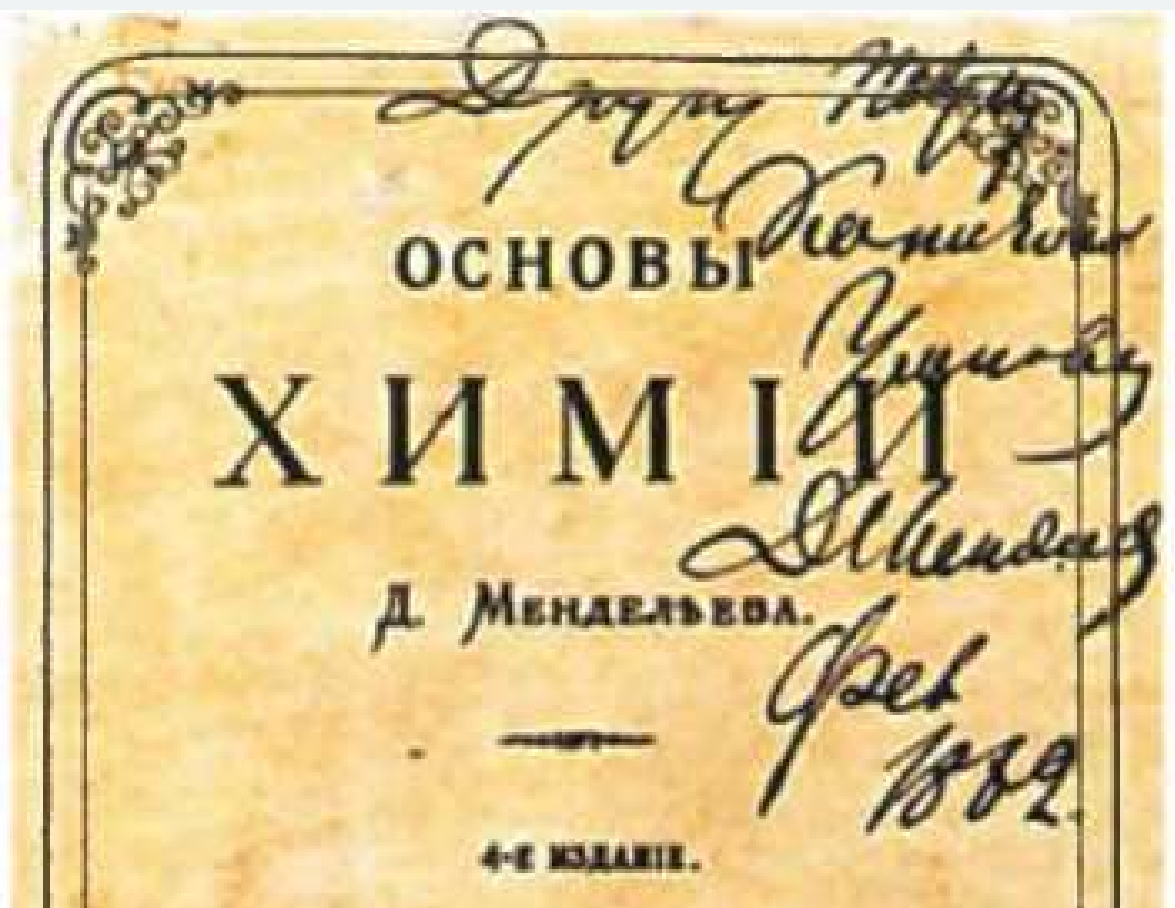 Другу
ОСНОВЫ
ХИМІИ
Д Менделеев
Д. МЕНДЕЛѢЕВА.
Фев
1882.
4-Е ИЗДАНІЕ.